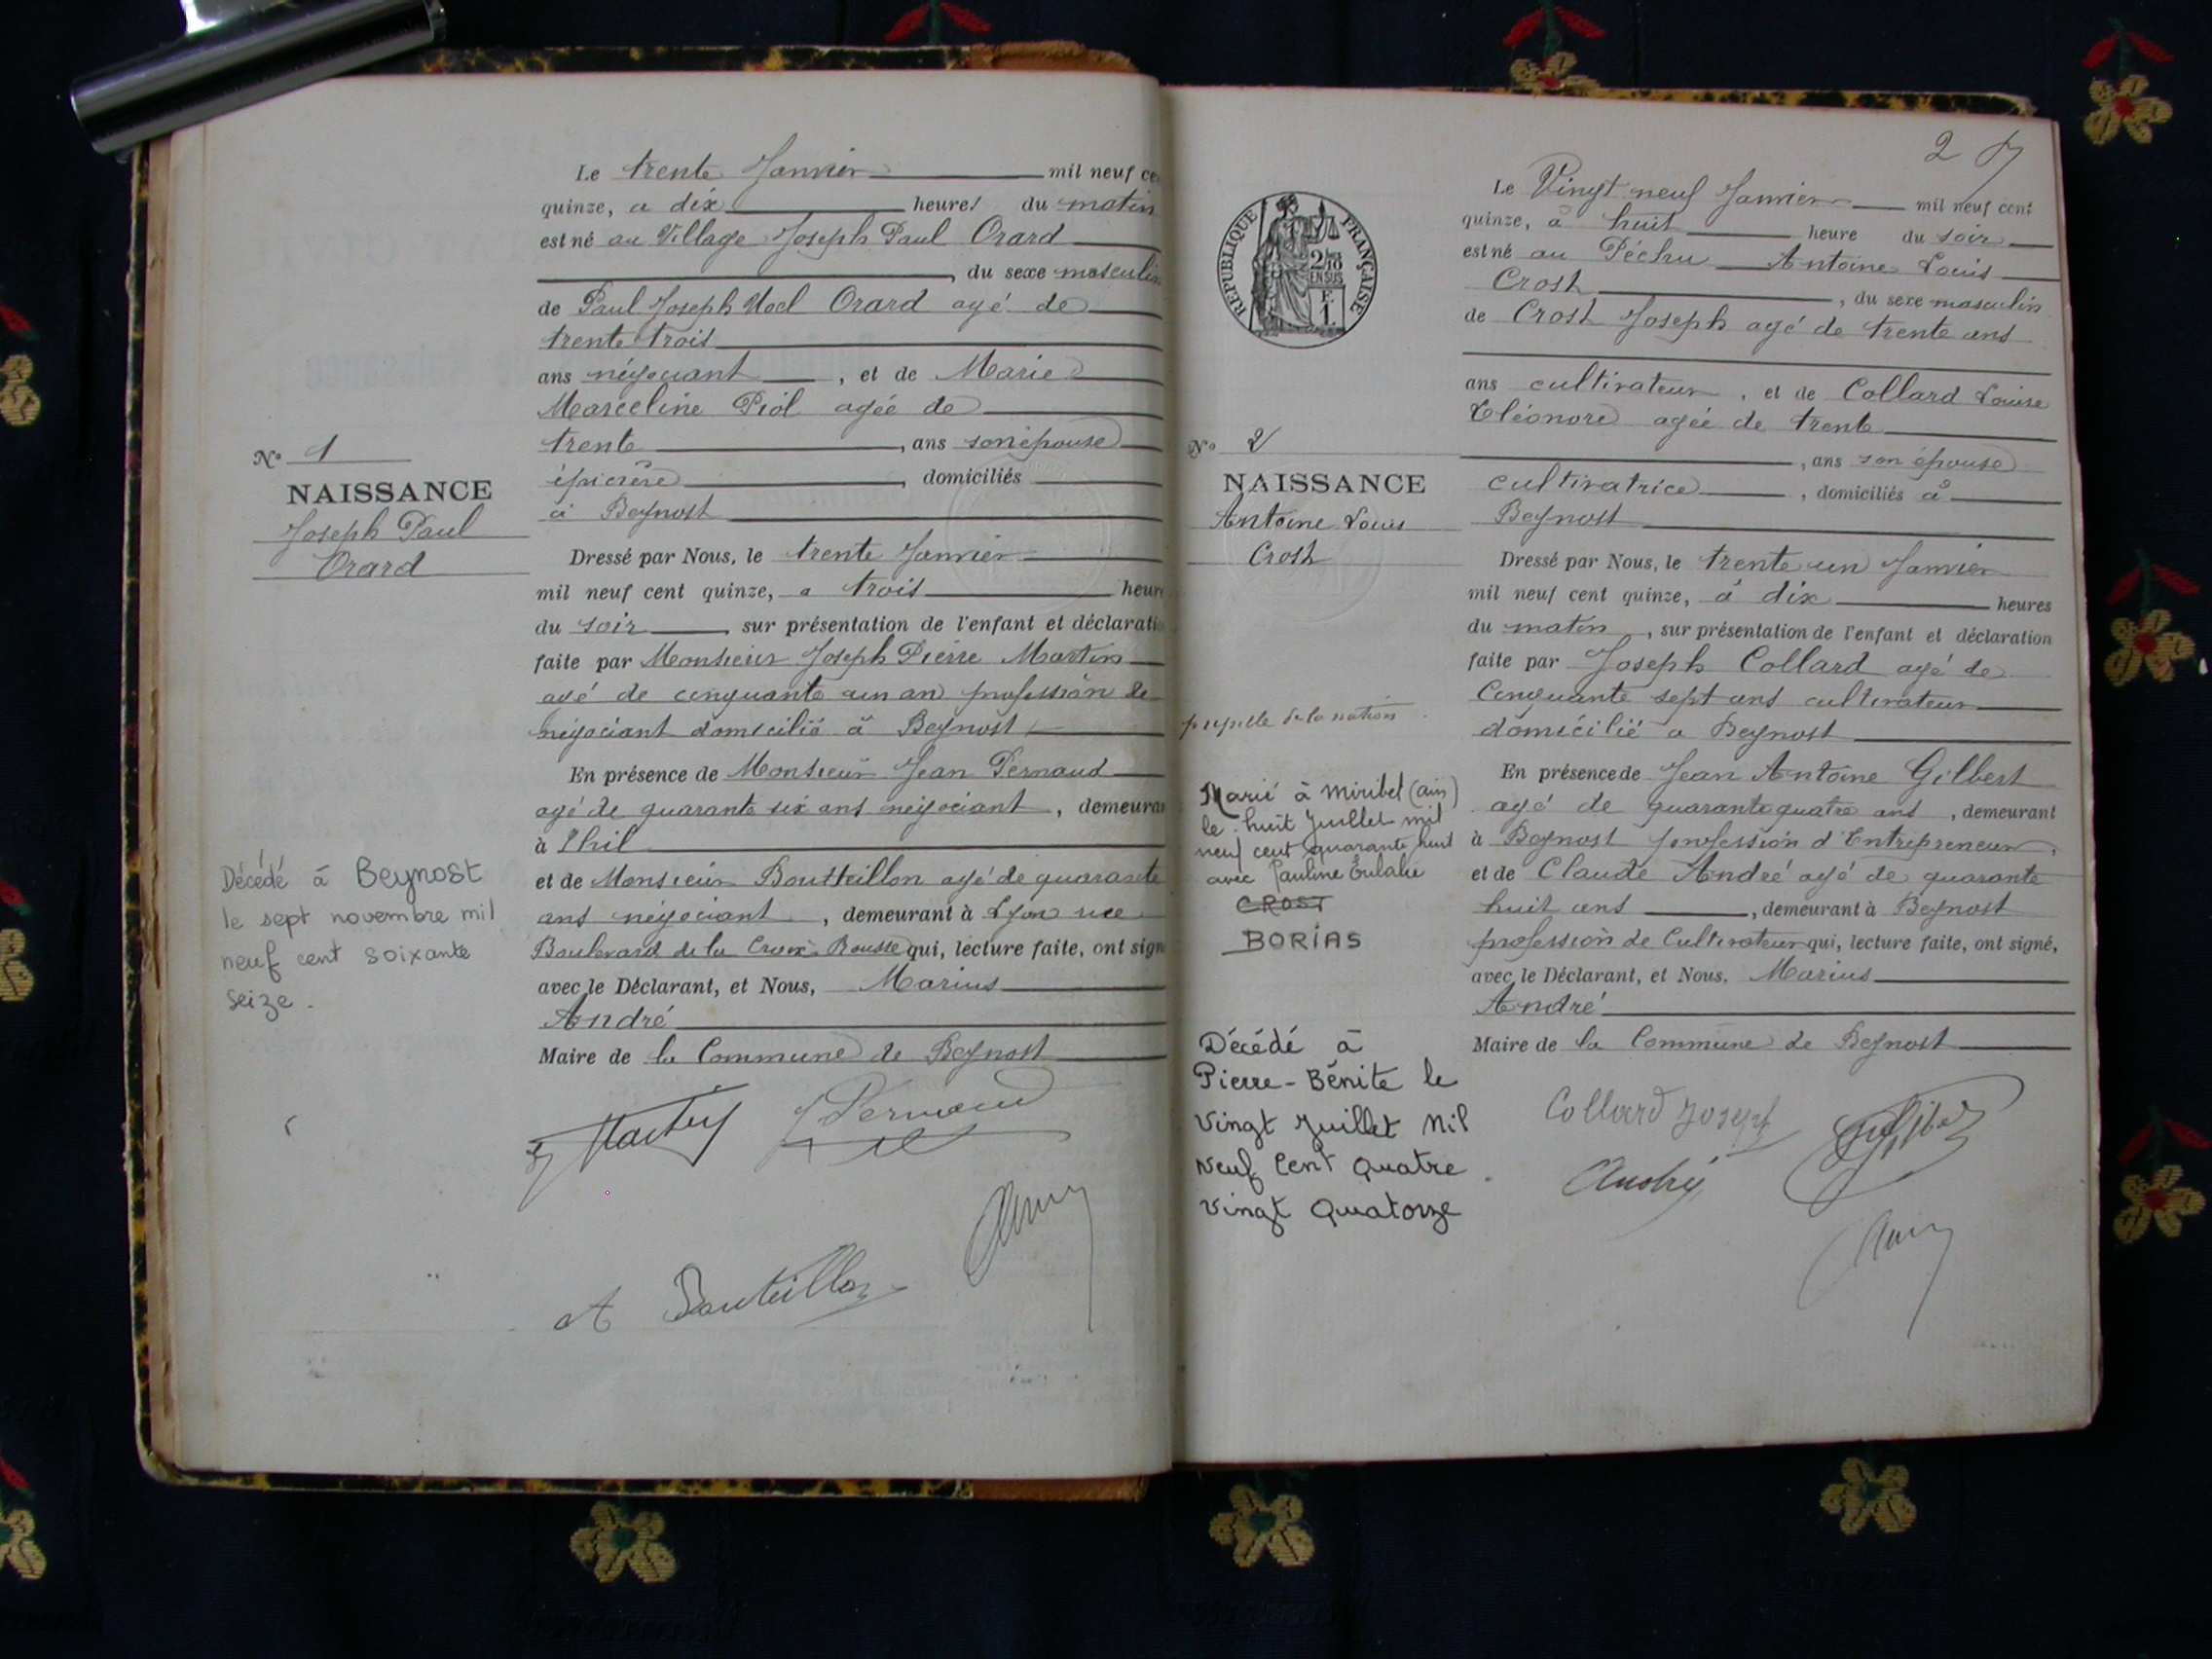 Le trente Janvier mil neuf ce
quinze, a dix heures du matin
est né au Village Joseph Paul Orard
, du sexe masculin
de Paul Joseph Noel Orard agé de
trente trois
ans négociant, et de Marie
Marceline Piol agée de
trente, ans son épouse
épicière, domiciliés
à Beynost
N° 1
NAISSANCE
Joseph Paul
Orard
Dressé par Nous, le trente Janvier
mil neuf cent quinze, a trois heure
du soir, sur présentation de l'enfant et déclaratio
faite par Monsieur Joseph Pierre Martin
agé de cinquante un an profession de
négociant domicilié à Beynost
En présence de Monsieur Jean Pernaud
agé de quarante six ans négociant, demeuran
à Thil
et de Monsieur Boutteillon agé de quarante
ans négociant, demeurant à Lyon rue
Boulevard de la Croix-Rousse qui, lecture faite, ont sign
avec le Déclarant, et Nous, Marius
André
Maire de la Commune de Beynost
Décédé à Beynost
le sept novembre mil
neuf cent soixante
seize.
J Pernaud
A Bouteillon
2
REPUBLIQUE FRANÇAISE
2/10
EN SUS
F.
1
Le Vingt neuf Janvier mil neuf cent
quinze, à huit heure du soir
est né au Péchu Antoine Louis
Crost, du sexe masculin
de Crost Joseph agé de trente ans
ans cultivateur, et de Collard Louise
Eléonore agée de trente
, ans son épouse
cultivatrice, domiciliés à
Beynost
N° 2
NAISSANCE
Antoine Louis
Crost
Dressé par Nous, le trente un Janvier
mil neuf cent quinze, à dix heures
du matin, sur présentation de l'enfant et déclaration
faite par Joseph Collard agé de
Cinquante sept ans cultivateur
domicilié a Beynost
En présence de Jean Antoine Gilbert
agé de quarante quatre ans, demeurant
à Beynost profession d'Entrepreneur,
et de Claude André agé de quarante
huit ans, demeurant à Beynost
profession de Cultivateur qui, lecture faite, ont signé,
avec le Déclarant, et Nous, Marius
André
Maire de la Commune de Beynost
pupille de la nation
Marié à Miribel (ain)
le huit Juillet mil
neuf cent quarante huit
avec Pauline Eulalie
CROST
BORIAS
Décédé à
Pierre-Bénite le
Vingt Juillet Mil
Neuf Cent Quatre
Vingt Quatorze
Collard Joseph
André